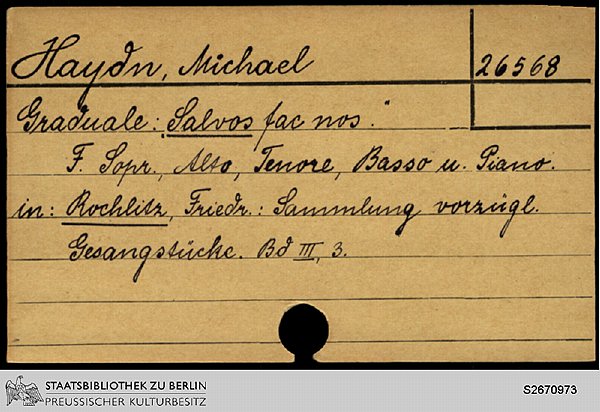 Haydn, Michael
26568
Graduale: „Salvos fac nos."
F. Sopr., Alto, Tenore, Basso u. Piano.
in: Rochlitz, Friedr.: Sammlung vorzügl.
Gesangstücke. Bd III, 3.
STAATSBIBLIOTHEK ZU BERLIN
PREUSSISCHER KULTURBESITZ
S2670973